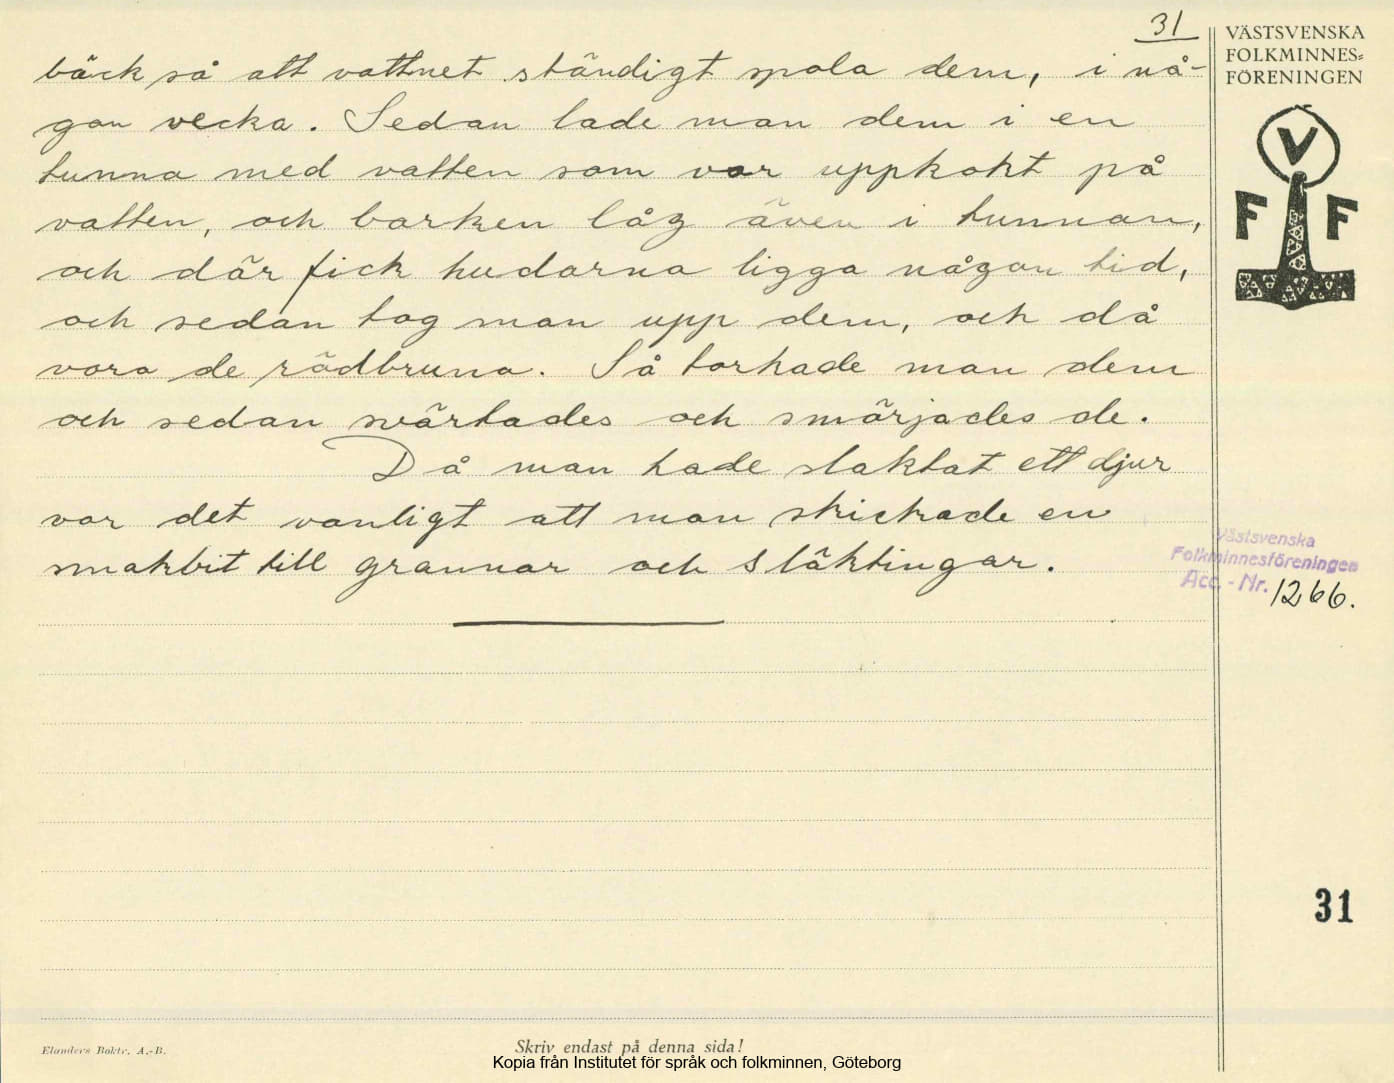 31
VÄSTSVENSKA
FOLKMINNES=
FÖRENINGEN
bäck så att vattnet ständigt spola dem, i nå-
gon vecka. Sedan lade man dem i en
tunna med vatten som var uppkokt på
vatten, och barken låg även i tunnan,
och där fick hudarna ligga någon tid,
och sedan tog man upp dem, och då
voro de rödbruna. Så torkade man dem
och sedan svärtades och smörjades de.
Då man hade slaktat ett djur
var det vanligt att man skickade en
smakbit till grannar och släktingar.
V
F F
Västsvenska
Folkminnesföreningen
Acc. - Nr. 1266.
31
Elanders Boktr. A.-B.
Skriv endast på denna sida!
Kopia från Institutet för språk och folkminnen, Göteborg